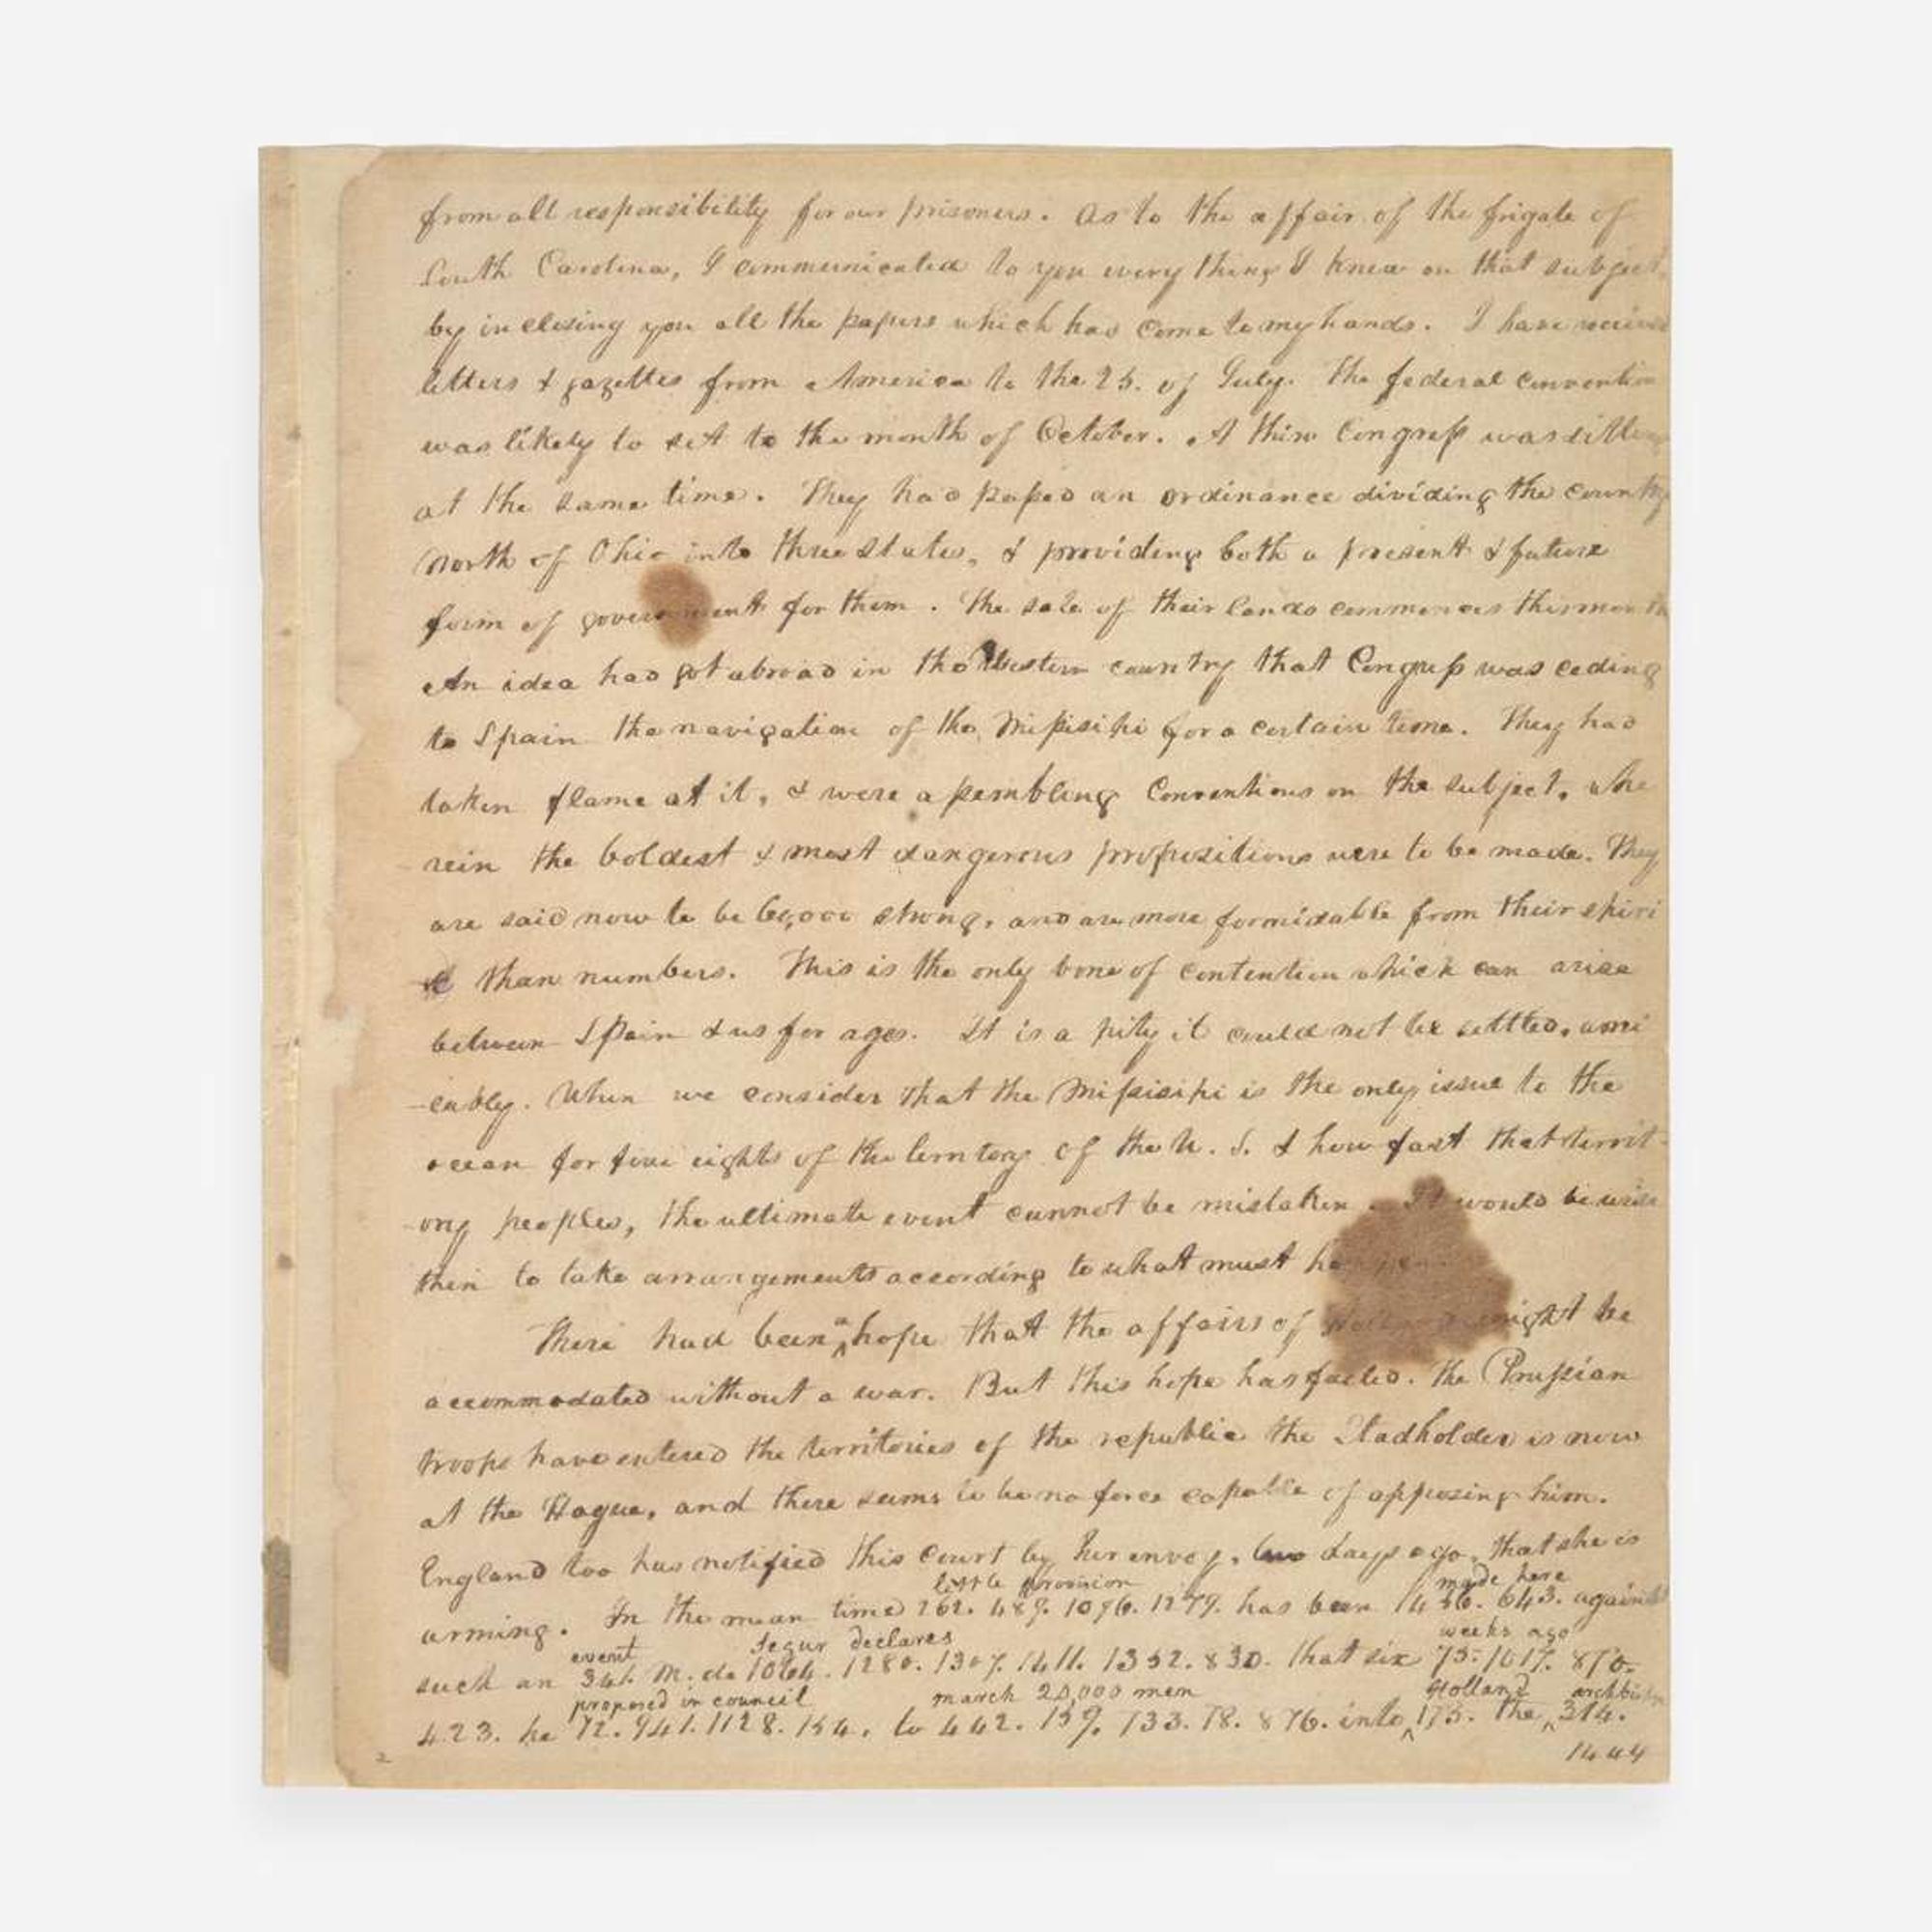 from all responsibility for our prisoners. As to the affair of the frigate of
South Carolina, I communicated to you every thing I knew on that subject,
by inclosing you all the papers which had come to my hands. I have received
letters & gazettes from America to the 25. of July. The federal convention
was likely to set to the month of October. A thin Congress was sitting
at the same time. They had passed an ordinance dividing the country
North of Ohio into three states, & providing both a present & future
form of government for them. The sale of their lands commences this month
An idea had got abroad in the Western country that Congress was ceding
to Spain the navigation of the Missisipi for a certain time. They had
taken flame at it, & were assembling Conventions on the subject, whe
rein the boldest & most dangerous propositions were to be made. They
are said now to be 60,000 strong, and are more formidable from their spiri
t than numbers. This is the only bone of contention which can arise
between Spain & us for ages. It is a pity it could not be settled, ami
-cably. When we consider that the Missisipi is the only issue to the
ocean for five eights of the territory of the U. S. & how fast that territ-
-ory peoples, the ultimate event cannot be mistaken. It would be wise
then to take arrangements according to what must happen.
There had been a hope that the affairs of Holland might be
accommodated without a war. But this hope has failed. The Prussian
troops have entered the territories of the republic the Stadholder is now
at the Hague, and there seems to be no force capable of opposing him.
England too has notified this Court by her envoy, two days ago, that she is
little provision made here
arming. In the mean time 262. 487. 1096. 1279. has been 1436. 643. against
event Segur declares weeks ago
such an 341. M. de 1064. 1280. 1307. 1411. 1352. 830. that six 75. 1017. 870.
proposed in council march 20,000 men Holland
423. he 72. 941. 1128. 154. to 442. 159. 733. 78. 876. into 175. the 314.
1444
2